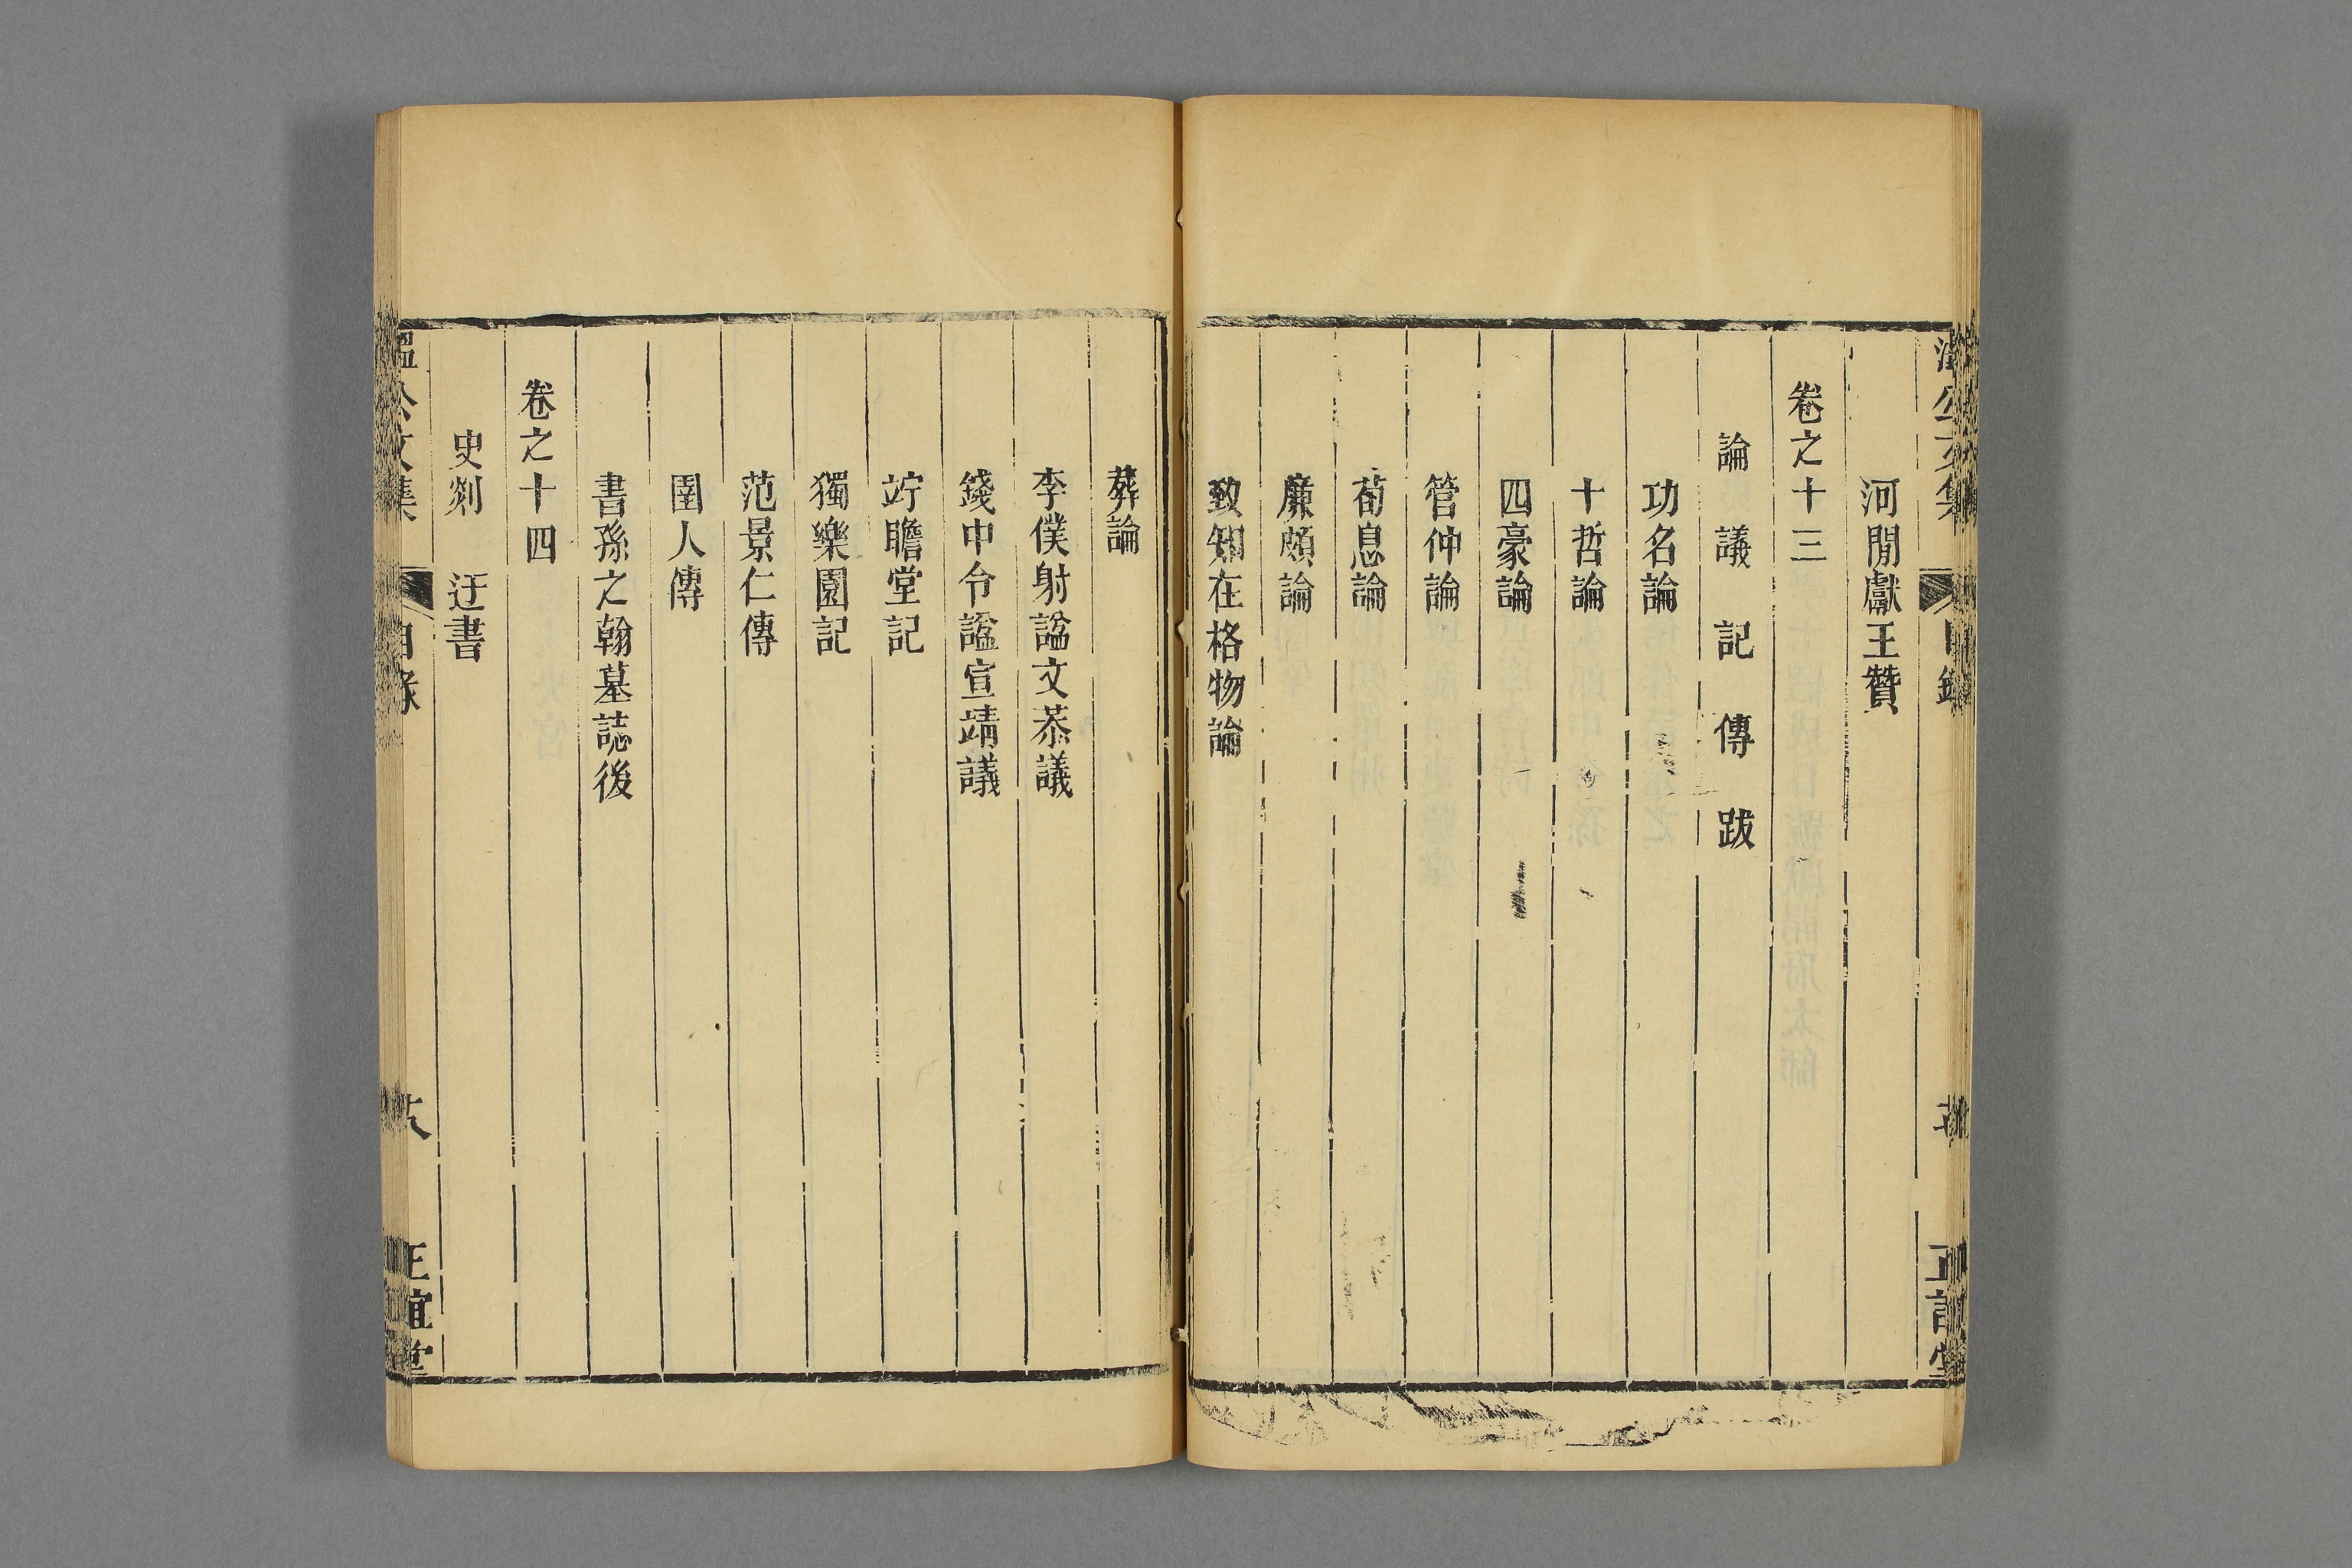 河閒獻王贊
卷之十三
論 議 記 傳 跋
功名論
十哲論
四豪論
管仲論
荀息論
廉頗論
致知在格物論
葬論
李僕射諡文恭議
錢中令諡宣靖議
竚瞻堂記
獨樂園記
范景仁傳
圉人傳
書孫之翰墓誌後
卷之十四
史剡 迂書
溫公文集 目錄 正誼堂